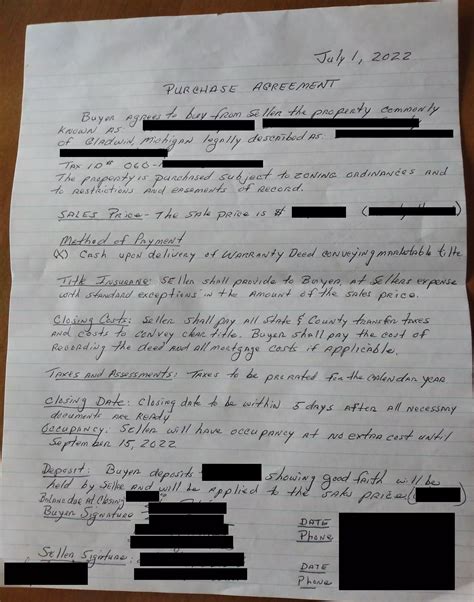 July 1, 2022
PURCHASE AGREEMENT
Buyer agrees to buy from Seller the property commonly
KNOWN AS:
of Gladwin, Michigan legally described as:
TAX ID# 060-
The property is purchased subject to zoning ordinances and
to restrictions and easements of record.
SALES PRICE - The sale price is $
Method of Payment
(X) Cash upon delivery of Warranty Deed conveying marketable title
Title Insurance: Seller shall provide to Buyer, at Sellers expense
with standard exceptions in the amount of the sales price.
Closing Costs: Seller shall pay all State & County transfer taxes
and costs to convey clear title. Buyer shall pay the cost of
recording the deed and all mortgage costs if applicable.
Taxes and Assessments: Taxes to be prorated for the calendar year
Closing Date: Closing date to be within 5 days after all necessary
documents are ready
Occupancy: Seller will have occupancy at no extra cost until
September 15, 2022
Deposit: Buyer deposits showing good faith will be
held by Seller and will be applied to the sale price (
Balance due at Closing
Buyer Signature
DATE
Phone
Seller Signture:
DATE
Phone